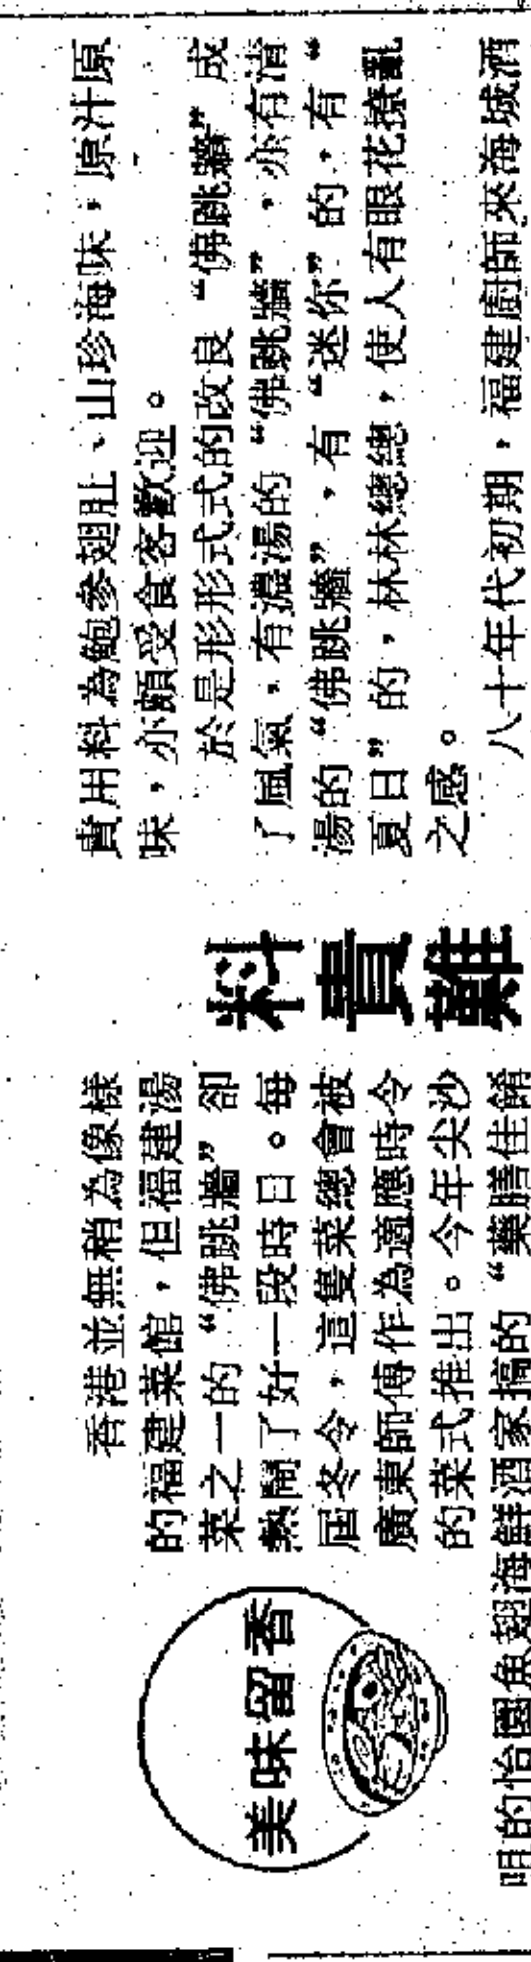 美味留香
香港並無稍為像樣
的福建菜館，但福建湯
菜之一的“佛跳牆”卻
熱鬧了好一段時日。每
屆冬令，這隻菜總會被
廣東師傅作為適應時令
的菜式推出。今年尖沙
咀的怡園魚翅海鮮酒家搞的“藥膳佳餚
料貴難
貴用料為鮑參翅肚、山珍海味，原汁原
味，亦頗受食客歡迎。
於是形形式式的改良“佛跳牆”成
了風氣，有濃湯的“佛跳牆”，亦有清
湯的“佛跳牆”，有“迷你”的，有“
夏日”的，林林總總，使人有眼花撩亂
之感。
八十年代初期，福建廚師來海城酒